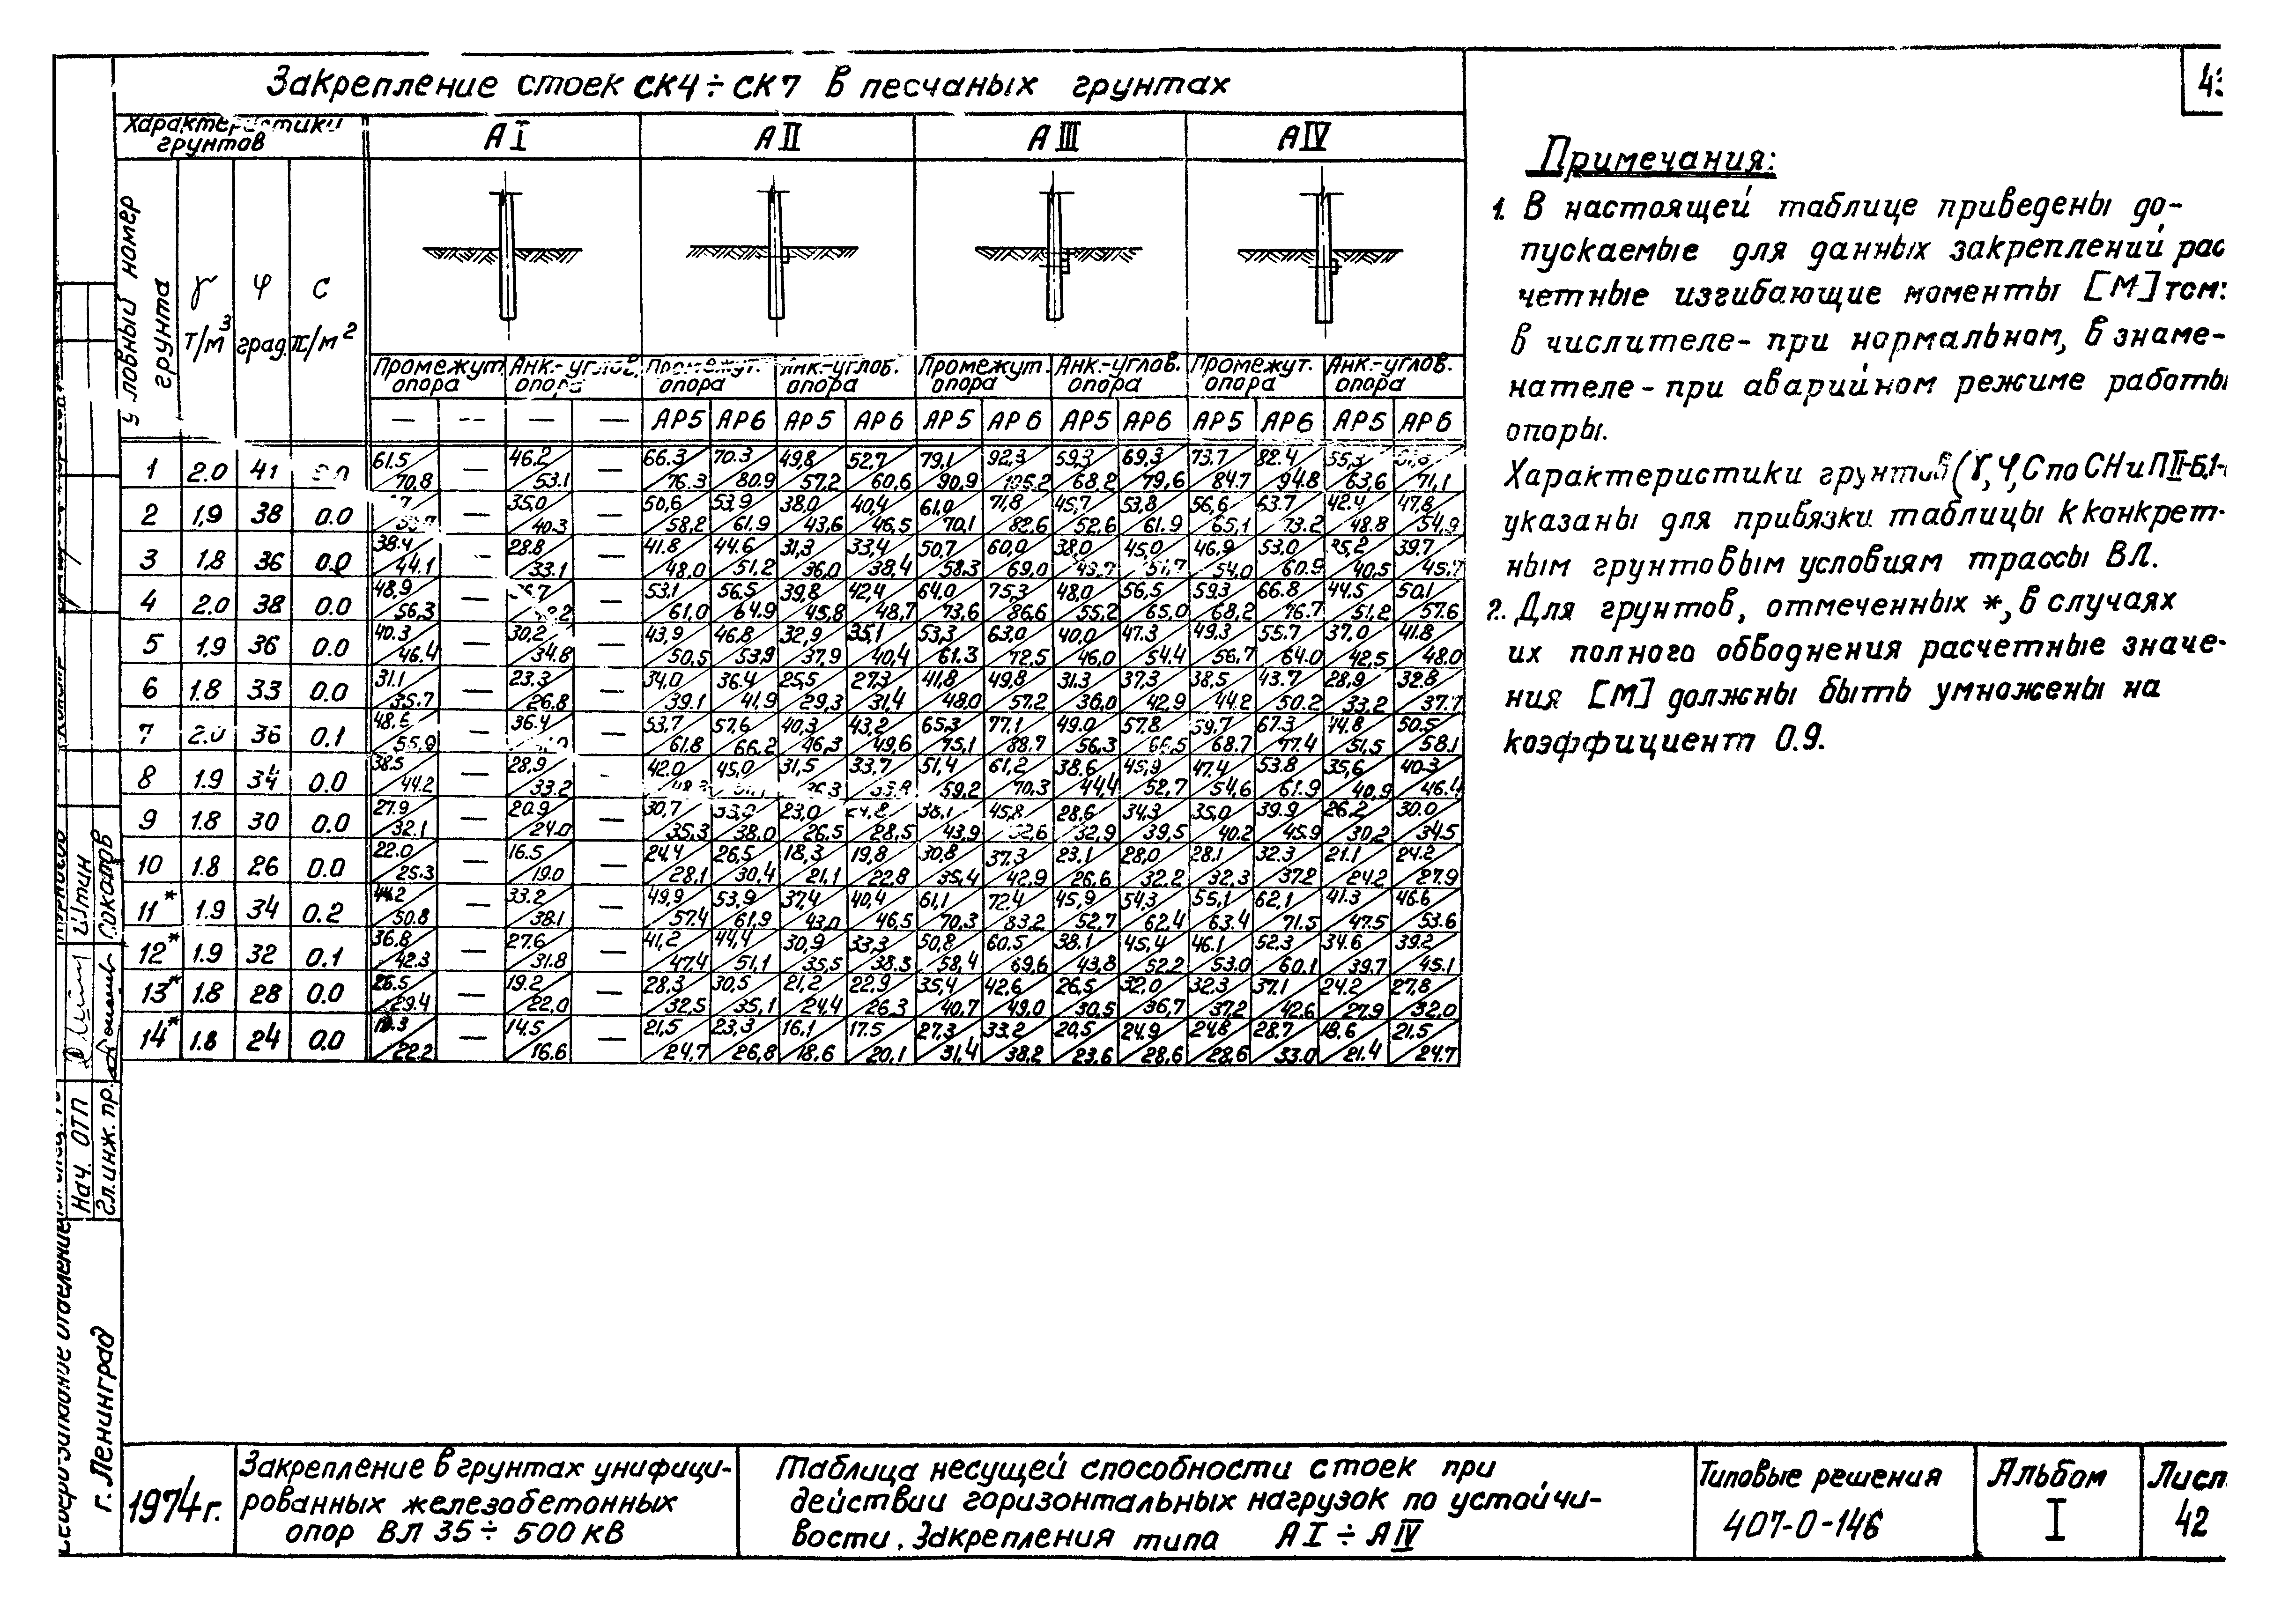 Закрепление стоек СК4÷СК7 в песчаных грунтах
Характеристики грунтов
А I
А II
А III
А IV
ловный номер грунта
γ т/м³
φ град.
С т/м²
Промежут. опора
Анк.-углов. опора
Промежут. опора
Анк.-углов. опора
Промежут. опора
Анк.-углов. опора
Промежут. опора
Анк.-углов. опора
— — — — АР5 АР6 АР5 АР6 АР5 АР6 АР5 АР6 АР5 АР6 АР5 АР6
1 2.0 41 61.5/70.8 — 46.2/53.1 — 66.3/76.3 70.3/80.9 49,8/57.2 52,7/60,6 79,1/90,9 92,3/106.2 59,3/68,2 69,3/79,6 73.7/84.7 82.4/94.8 55,3/63,6 /71,1
2 1,9 38 0.0 — 35,0/40.3 50,6/58,2 53,9/61.9 38,0/43,6 40,4/46,5 61,0/70,1 71,8/82,6 45,7/52,6 53,8/61,9 56,6/65,1 63.7/73.2 42.4/48.8 47,8/54,9
3 1,8 36 0.0 38.4/44.1 — 28.8/33.1 — 41.8/48.0 44.6/51.2 31,3/36,0 33,4/38,4 50.7/58.3 60,0/69,0 38,0/43,7 45,0/51,7 46,9/54,0 53.0/60.9 35,2/40,5 39.7/45.7
4 2.0 38 0.0 48,9/56,3 — — 53.1/61,0 56,5/64.9 39,8/45,8 42,4/48,7 64,0/73,6 75,3/86,6 48,0/55,2 56,5/65,0 59,3/68,2 66.8/76.7 44,5/51,2 50.1/57.6
5 1,9 36 0.0 40.3/46.4 — 30,2/34.8 — 43,9/50,5 46,8/53,9 32,9/37,9 35,1/40,4 53,3/61.3 63,0/72,5 40,0/46,0 47.3/54.4 49.3/56,7 55.7/64.0 37,0/42,5 41.8/48.0
6 1.8 33 0.0 31.1/35.7 — 23.3/26.8 — 34,0/39.1 36.4/41,9 25,5/29,3 27,3/31,4 41,8/48,0 49,8/57.2 31.3/36,0 37,3/42,9 38,5/44,2 43.7/50.2 28,9/33,2 32.8/37.7
7 2.0 36 0.1 48.6/55.9 — 36.4/ — 53.7/61.8 57,6/66.2 40,3/46,3 43,2/49,6 65,3/75,1 77.1/88.7 49,0/56,3 57,8/66,5 59,7/68.7 67.3/77.4 44.8/51,5 50.5/58.1
8 1.9 34 0.0 38.5/44.2 — 28,9/33.2 42,0/48.3 45,0/ 31,5/36,3 33,7/38,8 51,4/59,2 61,2/70,3 38.6/44,4 45,9/52,7 47.4/54,6 53.8/61.9 35,6/40,9 40.3/46.4
9 1.8 30 0.0 27.9/32.1 — 20.9/24.0 — 30,7/35,3 33,0/38,0 23,0/26,5 24,8/28,5 38,1/43,9 45,8/52,6 28,6/32,9 34,3/39,5 35,0/40.2 39.9/45.9 26,2/30,2 30.0/34.5
10 1.8 26 0.0 22.0/25.3 — 16.5/19.0 — 24.4/28,1 26,5/30,4 18,3/21,1 19,8/22,8 30,8/35,4 37,3/42,9 23,1/26,6 28,0/32,2 28.1/32,3 32.3/37.2 21.1/24,2 24.2/27.9
11* 1.9 34 0.2 44.2/50.8 — 33.2/38.1 — 49,9/57.4 53,9/61,9 37,4/43,0 40,4/46,5 61,1/70,3 72,4/83,2 45,9/52,7 54,3/62,4 55,1/63.4 62,1/71.5 41.3/47.5 46.6/53.6
12* 1.9 32 0.1 36,8/42.3 — 27.6/31.8 — 41,2/47.4 44,4/51,1 30,9/35,5 33,3/38.3 50,8/58,4 60,5/69,6 38.1/43,8 45,4/52,2 46.1/53.0 52.3/60.1 34.6/39.7 39.2/45.1
13* 1.8 28 0.0 25.5/29.4 — 19.2/22.0 — 28.3/32.5 30,5/35,1 21,2/24,4 22,9/26,3 35,4/40,7 42,6/49,0 26,5/30,5 32,0/36,7 32.3/37.2 37.1/42.6 24.2/27,9 27,8/32.0
14* 1.8 24 0.0 19.3/22.2 — 14.5/16.6 — 21.5/24.7 23,3/26,8 16.1/18.6 17.5/20,1 27,3/31,4 33.2/38,2 20,5/23,6 24.9/28,6 24.8/28.6 28.7/33.0 18.6/21.4 21.5/24.7
Примечания:
1. В настоящей таблице приведены до-
пускаемые для данных закреплений рас
четные изгибающие моменты [М] тсм:
в числителе- при нормальном, в знаме-
нателе- при аварийном режиме работы
опоры.
Характеристики грунтов (γ, φ, С по СНиП II-Б.1-
указаны для привязки таблицы к конкрет-
ным грунтовым условиям трассы ВЛ.
2. Для грунтов, отмеченных *, в случаях
их полного обводнения расчетные значе-
ния [М] должны быть умножены на
коэффициент 0.9.
Нач. ОТП
Гл.инж. пр.
Штин
г. Ленинград
1974г.
Закрепление в грунтах унифици-
рованных железобетонных
опор ВЛ 35÷500 кВ
Таблица несущей способности стоек при
действии горизонтальных нагрузок по устойчи-
вости. Закрепления типа А I ÷ А IV
Типовые решения
407-0-146
Альбом
I
Лист
42